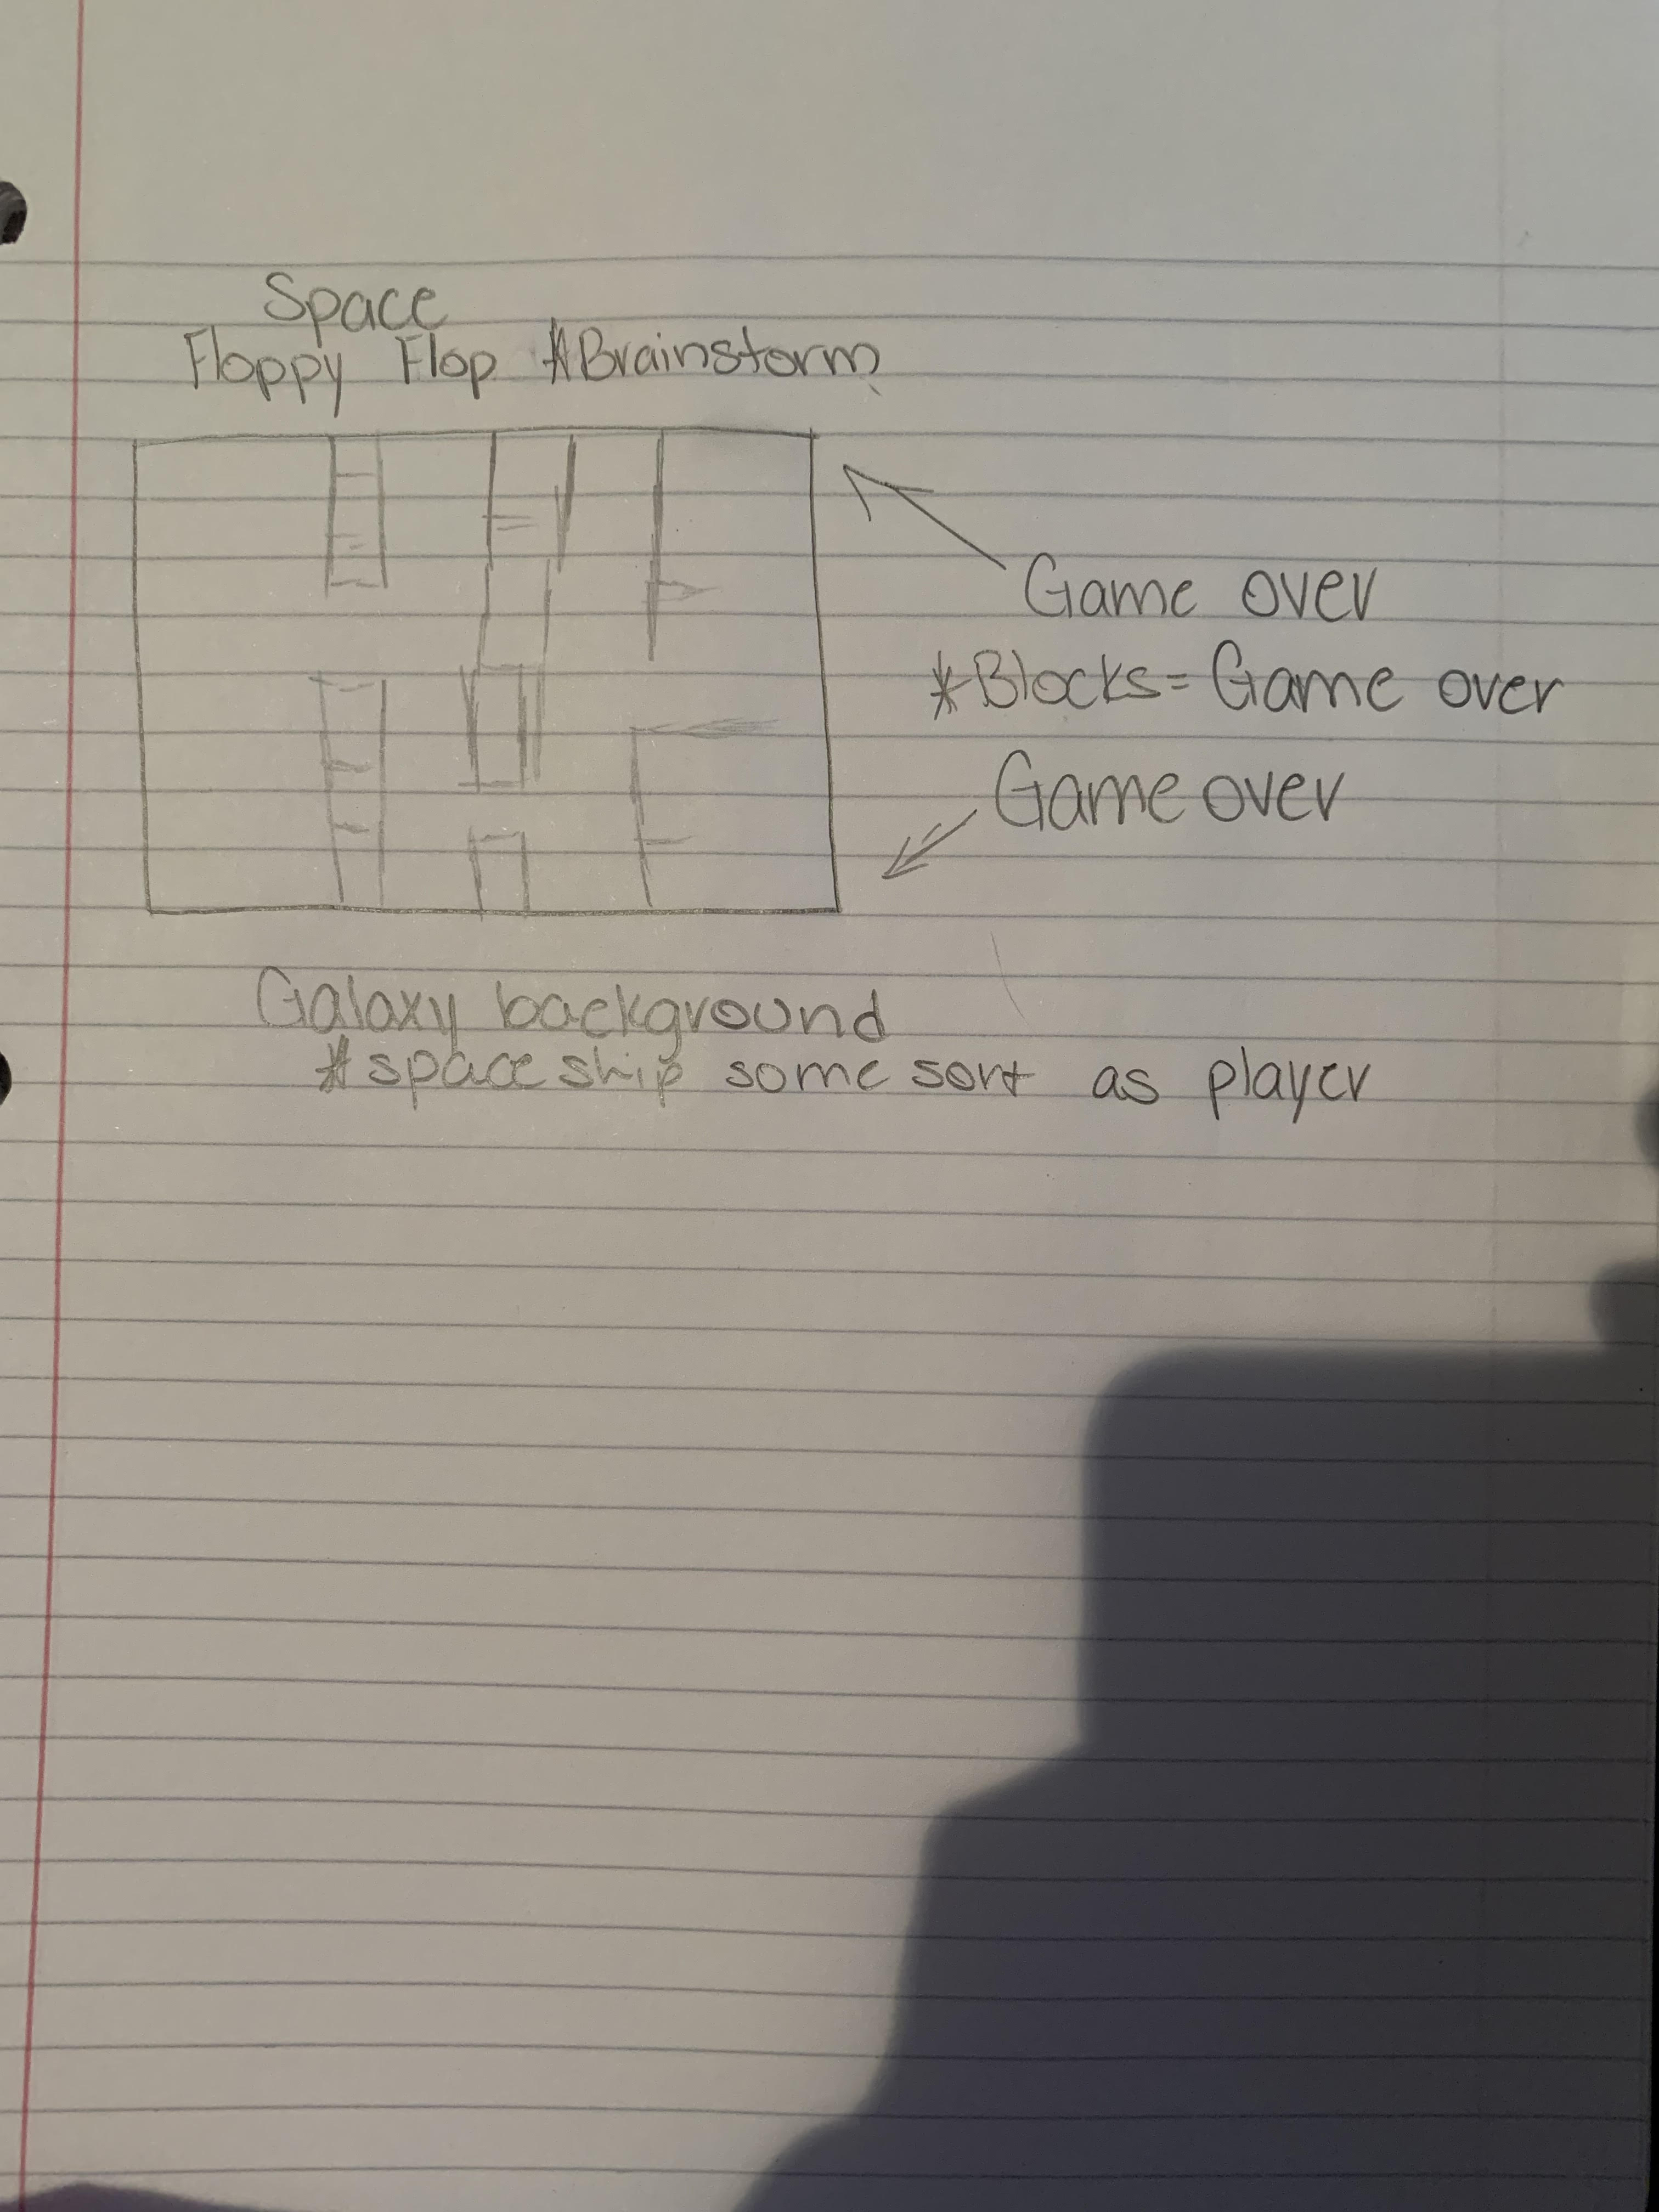 Space
Floppy Flop *Brainstorm
Game over
*Blocks = Game over
Game over
Galaxy background
*space ship some sort as player